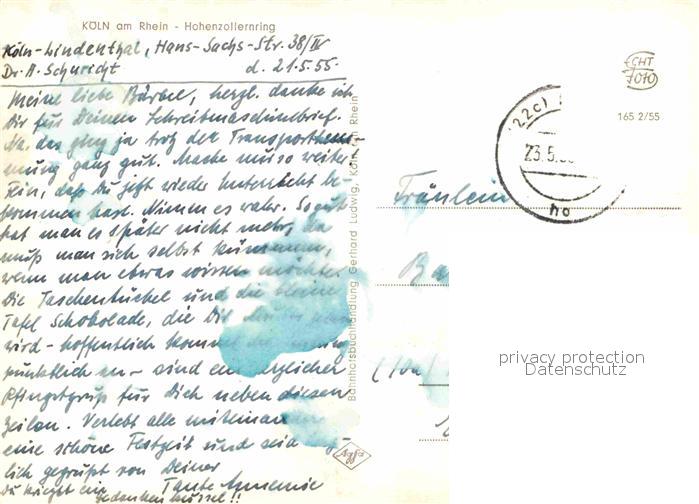 KÖLN am Rhein - Hohenzollernring
Köln-Lindenthal, Hans-Sachs-Str. 38/IV
Dr. A. Schuricht d. 21.5.55.
Meine liebe Bärbel, herzl. danke ich
Dir für Deinen Schreibmaschinbrief.
Na, das ging ja trotz der Transporthem-
mung ganz gut. Mache nu so weiter.
Fein, daß Du jetzt wieder Unterricht be-
kommen hast. Nimm es wahr. So gut
hat man es später nicht mehr, da
muß man sich selbst kümmern,
wenn man etwas wissen möchte.
Die Taschentücher und die kleine
Tafel Schokolade, die Dir
wird - hoffentlich kommt
pünktlich an - sind ein herzlicher
Pfingstgruß für Dich neben diesen
Zeilen. Verlebt alle miteinander
eine schöne Festzeit und seid
lich gegrüßt von Deiner
Tante Annemie
Du kriegst ein Gedankenbussel!!
Bahnhofsbuchhandlung Gerhard Ludwig, Köln am Rhein
Agfa
ECHT
FOTO
165 2/55
22c)
23.5.
ho
Fräulein
Ba
privacy protection
Datenschutz
(10a)